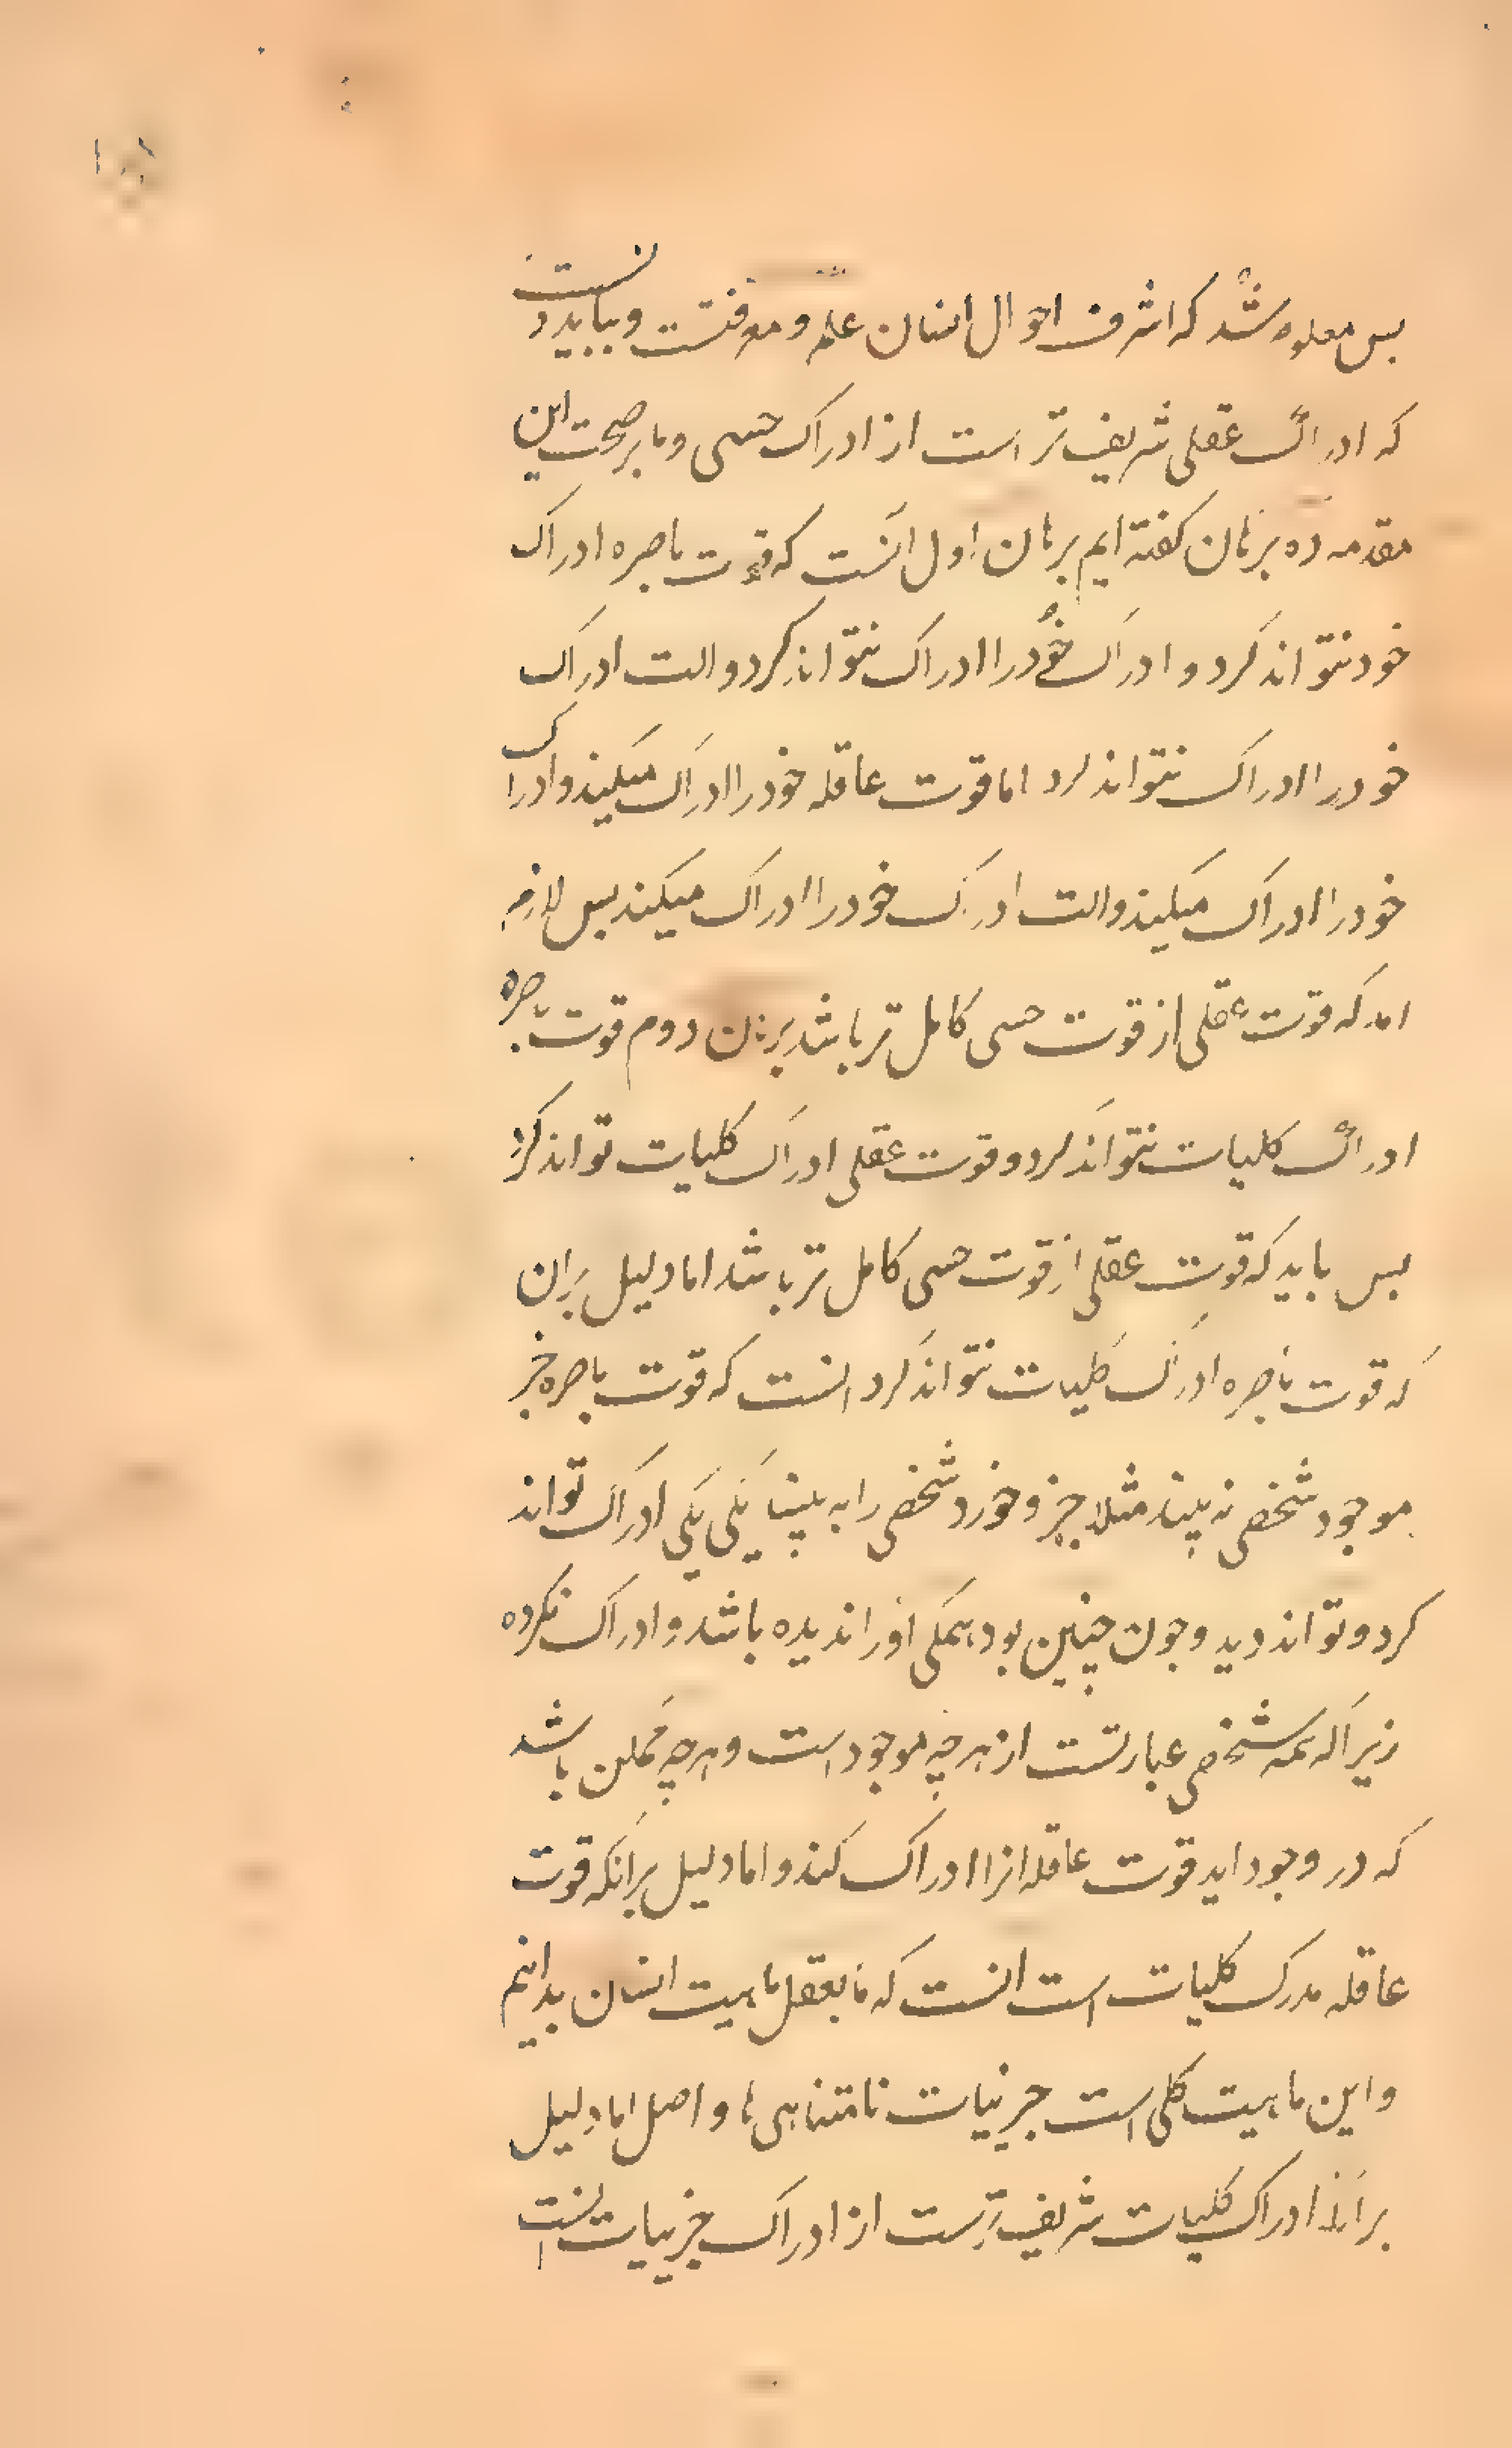 بس معلوم شد که اشرف احوال انسان علم و معرفتست و بباید دانست
که ادراک عقلی شریف تر است از ادراک حسی و ما بر صحت این
مقدمه ده برهان کفته ایم برهان اول انست که قوت باصره ادراک
خود نتواند کرد و ادراک خود را ادراک نتواند کرد و الت ادراک
خود را ادراک نتواند کرد اما قوت عاقله خود را ادراک میکند و ادراک
خود را ادراک میکند و الت ادراک خود را ادراک میکند بس لازم
امد که قوت عقلی از قوت حسی کامل تر باشد برهان دوم قوت باصره
ادراک کلیات نتواند کرد و قوت عقلی ادراک کلیات تواند کرد
بس باید که قوت عقلی از قوت حسی کامل تر باشد اما دلیل بران
که قوت باصره ادراک کلیات نتواند کرد انست که قوت باصره جز
موجود شخصی نه بیند مثلا جز و خورد شخصی را به بیند یکی یکی ادراک تواند
کرد و تواند دید و جون چنین بود همکی او را ندیده باشد و ادراک نکرده
زیرا که همه شخصی عبارتست از هر چه موجود است و هر چه ممکن باشد
که در وجود اید قوت عاقله انرا ادراک کند و اما دلیل برانکه قوت
عاقله مدرک کلیات است انست که ما بعقل ماهیت انسان بدانیم
و این ماهیت کلی است جزییات نامتناهی را و اصل اما دلیل
برانکه ادراک کلیات شریف ترست از ادراک جزییات انست